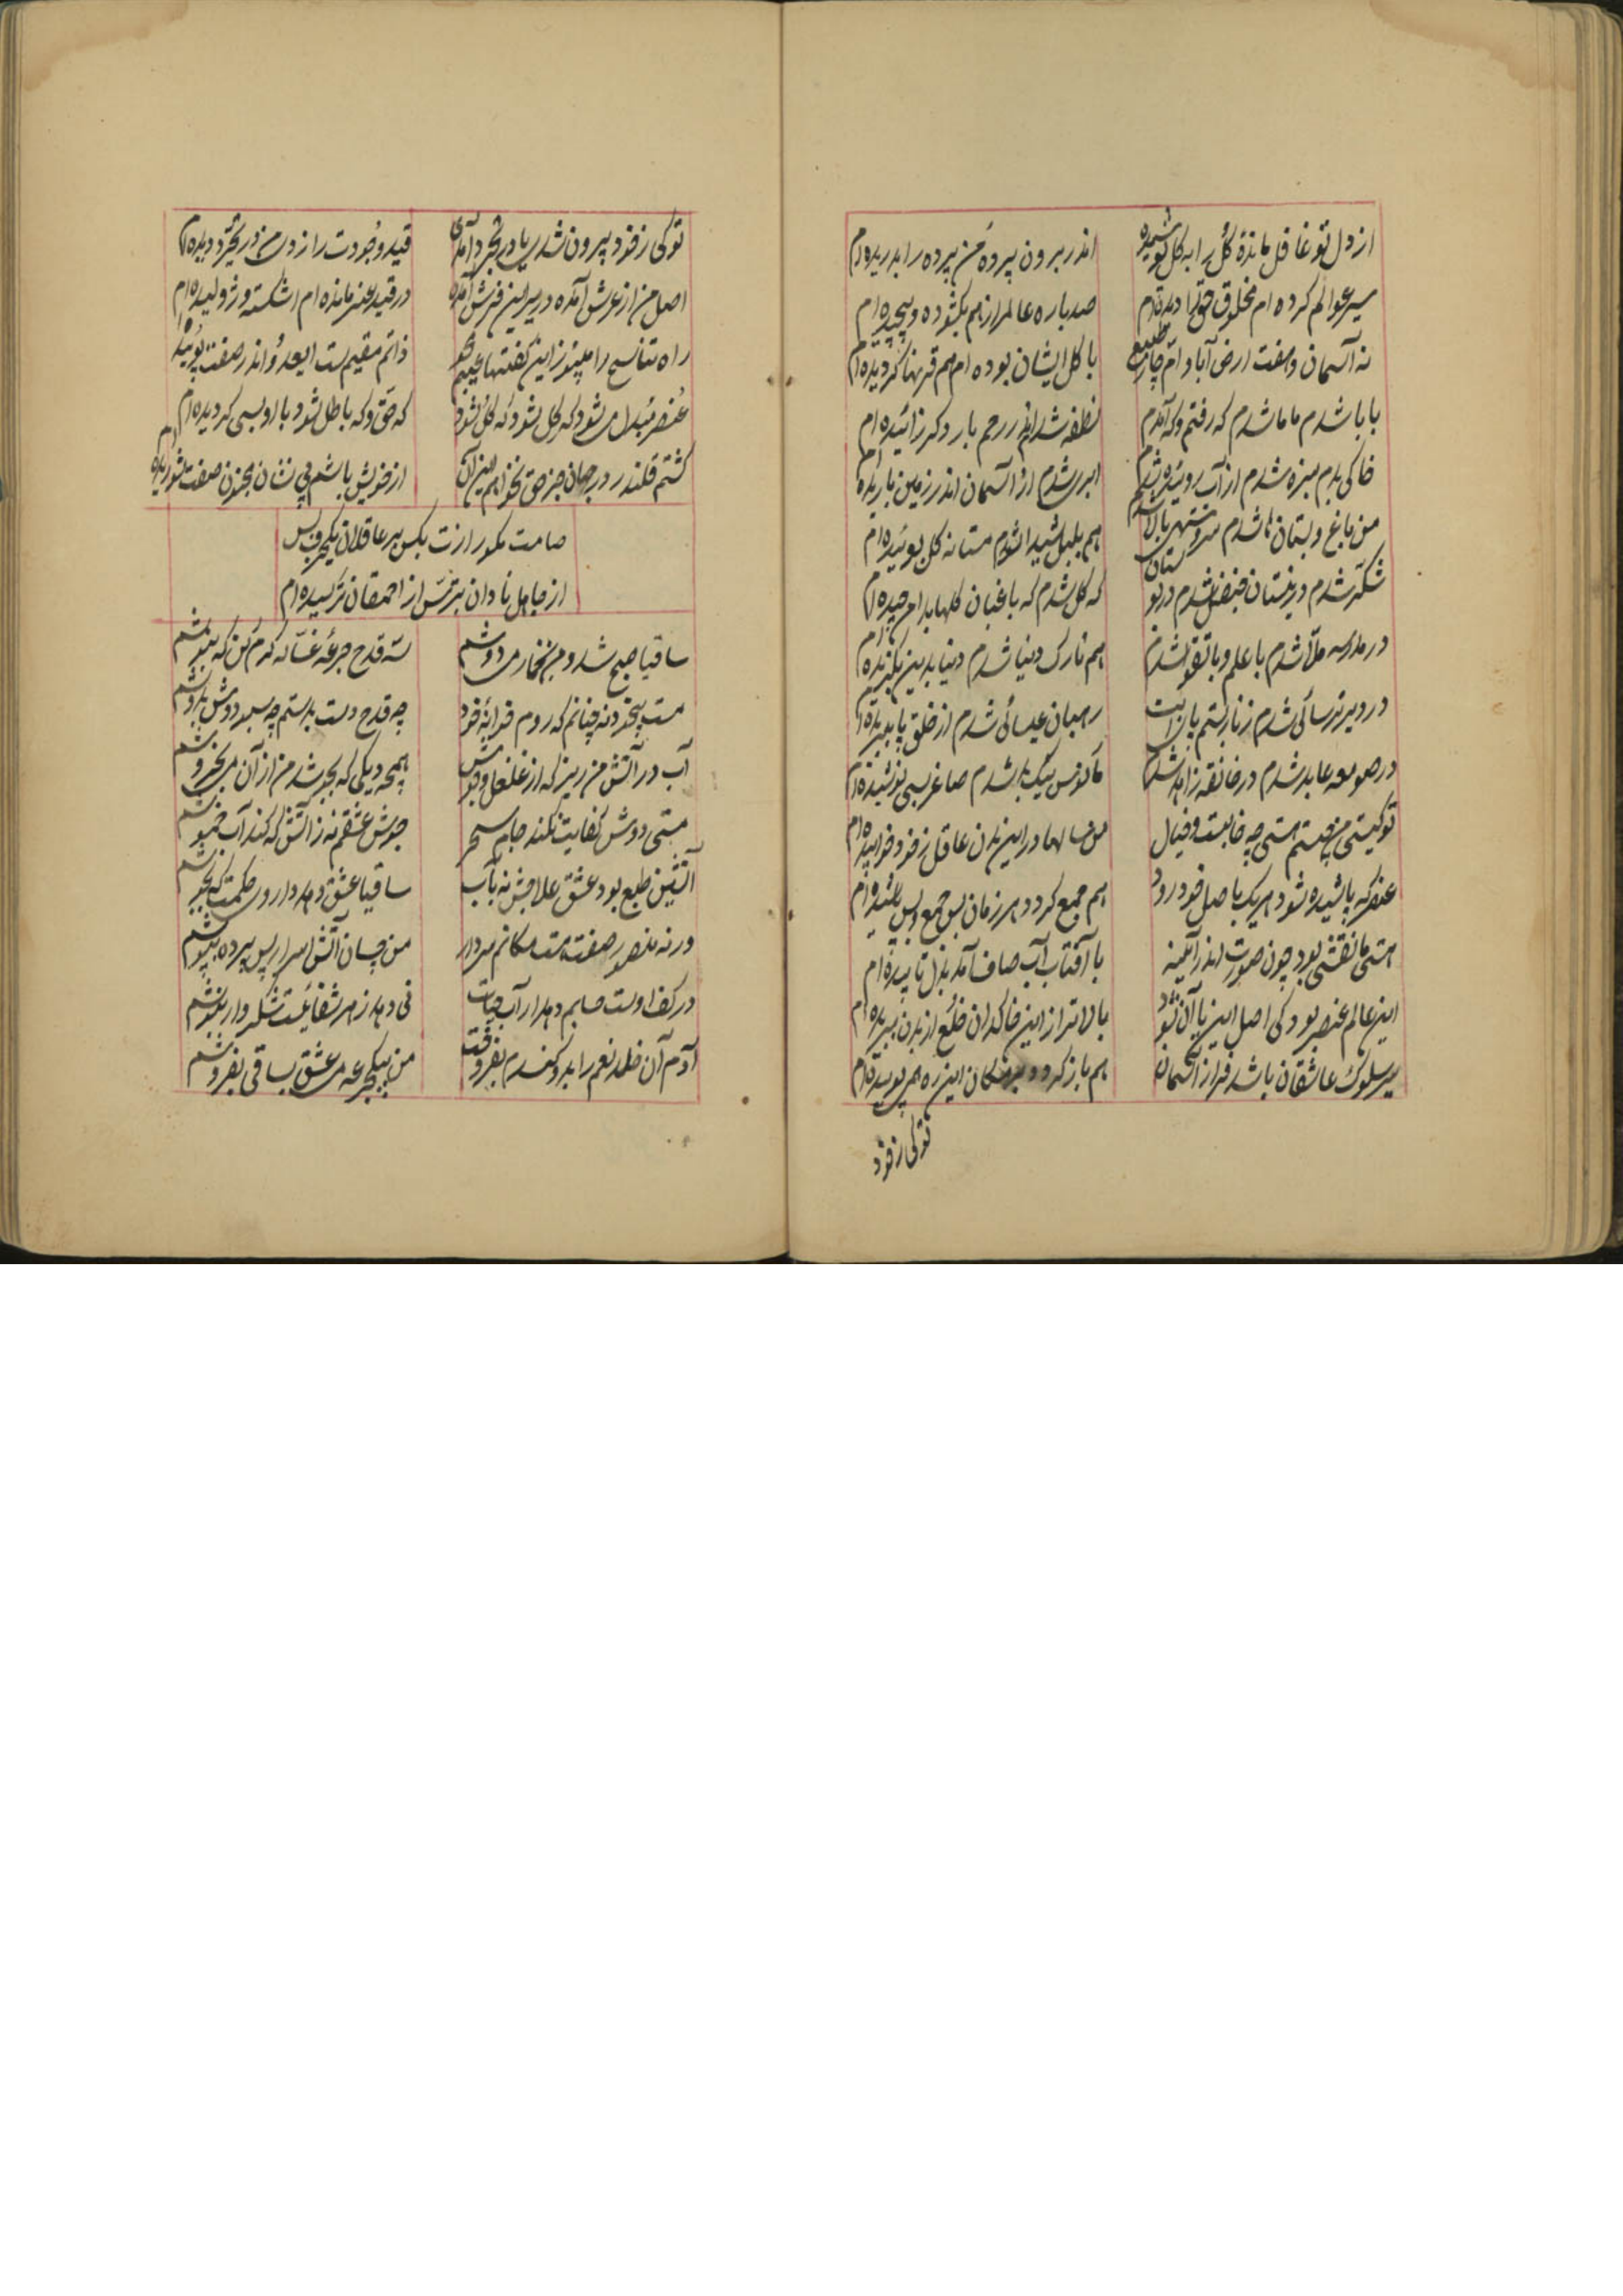 از دل تو غافل ماندهٔ گل را به گل بو
اندر برون پرده من پرده را بدریده‌ام
سیر عوالم کرده‌ام مخلوق حق را دیده‌ام
صد باره عالم را ز هم بگشوده و پیچیده‌ام
نه آسمان و هفت ارض آبا و ام چار
با کل ایشان بوده‌ام هم قرنها گردیده‌ام
بابا شدم ماما شدم که رفتم و که آمدم
نطفه شدم اندر رحم بار دگر زائیده‌ام
خاکی بدم سبزه شدم از آب روئیده شدم
ابری شدم از آسمان اندر زمین باریده‌ام
من باغ و بستان ها شدم سرو بالا شدم
هم بلبل شیدا شدم مستانه گل بوئیده‌ام
شکر شدم در نیستان شدم در بوستان
که گل شدم که باغبان گلها بدامن چیده‌ام
در مدرسه ملا شدم با علم و با تقوا شدم
هم تارک دنیا شدم دنیا بدین بگزیده‌ام
در دیر ترسائی شدم زنار بستم
رهبان عیسائی شدم از خلق پا ببریده‌ام
در صومعه عابد شدم در خانقه زاهد شدم
شدم صاغر بسی نوشیده‌ام
تو کیستی من چیستم هستی چه خوابست و خیال
من سالها در این بدن غافل ز خود خوابیده‌ام
عنصر که پاشیده شود هر یک باصل خود رود
هم جمع گردد هر زمان بس جمع و بس پاشیده‌ام
هستی ما نقشی بود چون صورت اندر آینه
با آفتاب آب صاف آمد بدل تابیده‌ام
این عالم عنصر بود کی اصل این با آن شود
بالاتر از این خاکدان خلع از بدن ببریده‌ام
سیر سلوک عاشقان باشد فراز آسمان
هم باز گردد این ره همی پوئیده‌ام
توکی ز خود
توکی ز خود بیرون شدی یا در تجرد آمدی
قید وجودت را ز دل من در تجرد دیده‌ام
اصل من از عرش آمده در زیر این فرش آمده
در قید عنصر مانده‌ام اشکسته و ژولیده‌ام
راه تناسخ را مپو زین گفتها عیبم مگو
ذاتم مقیم است ای عدو اندر صفت پوئیده‌ام
عنصر مبدل می‌شود که گل شود که کل شود
که حق و که باطل شود با او بسی گردیده‌ام
گشتم قلندر در جهان جز حق نخواهم این و آن
از خویش باشم بی نشان مجنون صفت شوریده‌ام
صامت مگو رازت بکس بر عاقلان یکحرف بس
از جاهل نادان بترس از احمقان ترسیده‌ام
ساقیا صبح شد و من بخمار می دوشم
سه قدح جرعه غسانه کرم کن که بنوشم
مست بیخود نه چنانم که روم خوابهٔ خود
چه قدح دست بدستم چه سبو دوش بدوشم
آب در آتش من ریز که از غلغل و جوش
همچو دیگی که بجوشد من از آن میخروشم
مستی دوش کفایت نکند جام سحر
جوش عشقم نه ز آتش که کند آب خموشم
آتشین طبع بود عشق علاجش نه بآب
ساقیا عشق دهد داروی حکمت که بجوشم
ورنه منصور صفت هست مکانم سر دار
من چسان آتش اسرار پس پرده بپوشم
در کف اوست صابم دهد ار آب حیات
نی دهد زهر شفائیست شکروار بنوشم
آدم آن خلد نعم را بدو گندم بفروخت
من بیکجرعه می عشق بساقی بفروشم